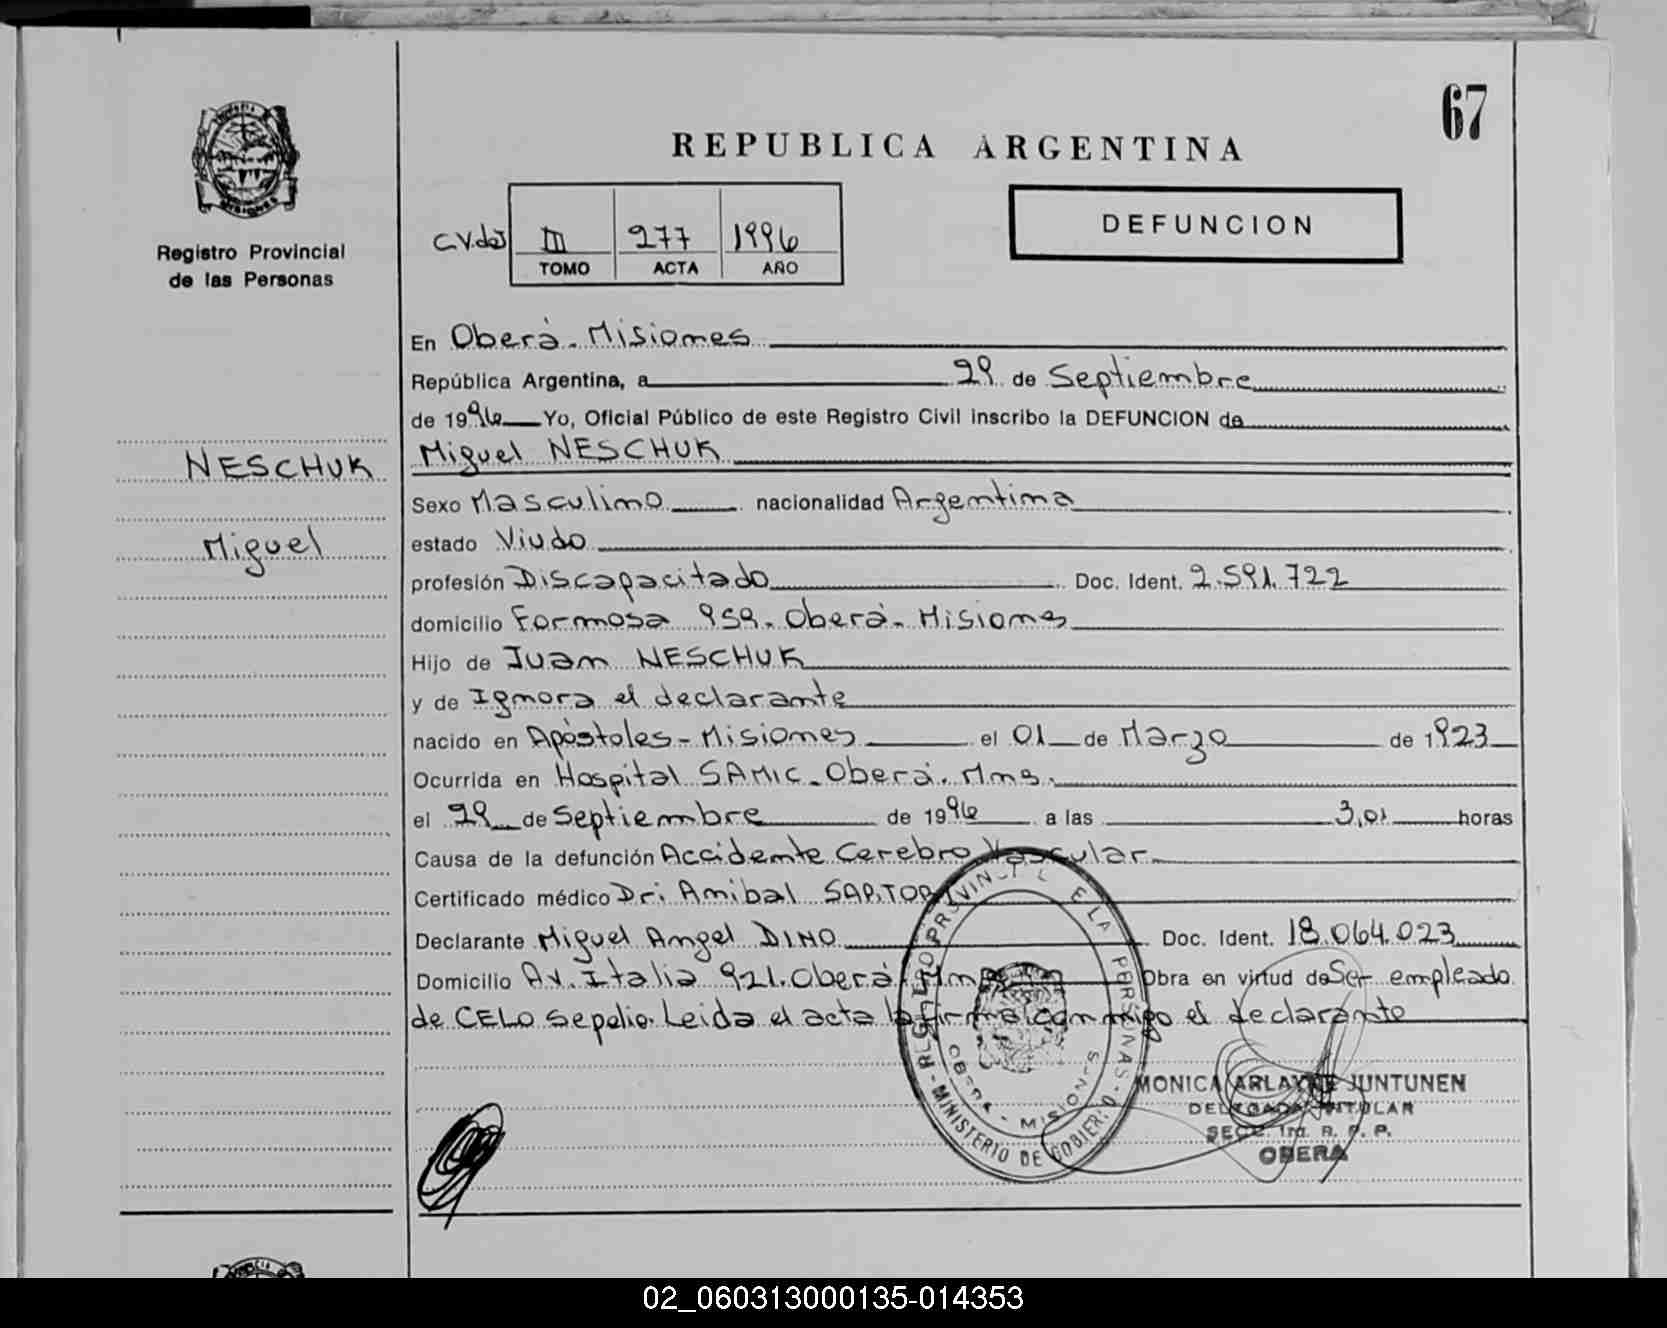 67
REPUBLICA ARGENTINA
Registro Provincial
de las Personas
III 277 1996
TOMO ACTA AÑO
DEFUNCION
En Oberá. Misiones
República Argentina, a 29 de Septiembre
de 1996 Yo, Oficial Público de este Registro Civil inscribo la DEFUNCION de
NESCHUK
Miguel
Miguel NESCHUK
Sexo Masculino nacionalidad Argentina
estado Viudo
profesión Discapacitado Doc. Ident. 2.591.722
domicilio Formosa 959. Oberá. Misiones
Hijo de Juan NESCHUK
y de Ignora el declarante
nacido en Apóstoles - Misiones el 01 de Marzo de 1923
Ocurrida en Hospital SAMIC. Oberá. Mnes.
el 29 de Septiembre de 1996 a las 3,01 horas
Causa de la defunción Accidente Cerebro Vascular
Certificado médico Dr: Anibal
Declarante Miguel Angel DINO Doc. Ident. 18.064.023
Domicilio Av. Italia 921. Oberá. Obra en virtud de Ser empleado
de CELO Sepelio. Leida el acta la firma conmigo el declarante
MINISTERIO DE GOBIERNO
OBERA - MISIONES
MONICA ARLAYNE JUNTUNEN
DELEGADA TITULAR
SECC. 1ra. R. P. P.
OBERA
02_060313000135-014353